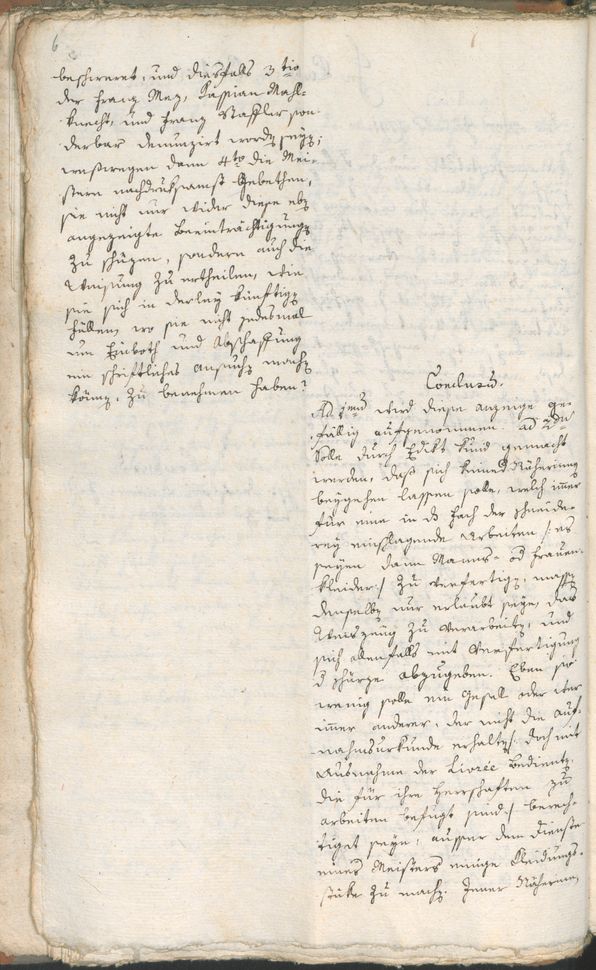 6
beschweret, und diesfalls 3tio
der Franz Mez, Kassian Mahl=
knecht, und Franz Staffler son=
derbar denunzirt worden seyn;
wesswegen dann 4to die Mei=
stern nachdruksamst gebethen,
sie nicht nur wider diese obn
angezeigte Beeinträchtigungn
zu schüzen, sondern auch die
Weisung zu ertheilen, wie
sie sich in derley künftign
fällen, wo sie nicht jedesmal
um Einboth und Abschaffung
ein schriftliches Ansuchn machn
könnn, zu benehmen haben?
Conclusu.
Ad 1mu wird diese anzeige ge=
fällig aufgenommen. ad 2du
Solle durch Edikt kund gemacht
werden, daß sich keine Näherinn
beygehen lassen solle, welch imer
für eine in ds fach der schneide=
rey einschlagende Arbeiten /: es
seyen dann Manns= od Frauen=
kleider :/ zu verfertign, massn
denselbn nur erlaubt seye, das
Weiszeug zu verarbeitn, und
sich allenfalls mit Verfertigung
d schürze abzugeben. Eben so
wenig solle ein Gesel oder wer
imer anderer, der nicht die auf=
nahmsurkunde erhaltn /: doch mit
Ausnahme der Livrée Bedientn,
die für ihre Herrschaften zu
arbeiten befugt sind :/ berech=
tiget seye, ausser dem Dienste
eines Meisters einige Kleidungs=
stüke zu machn. Jener Näherinn